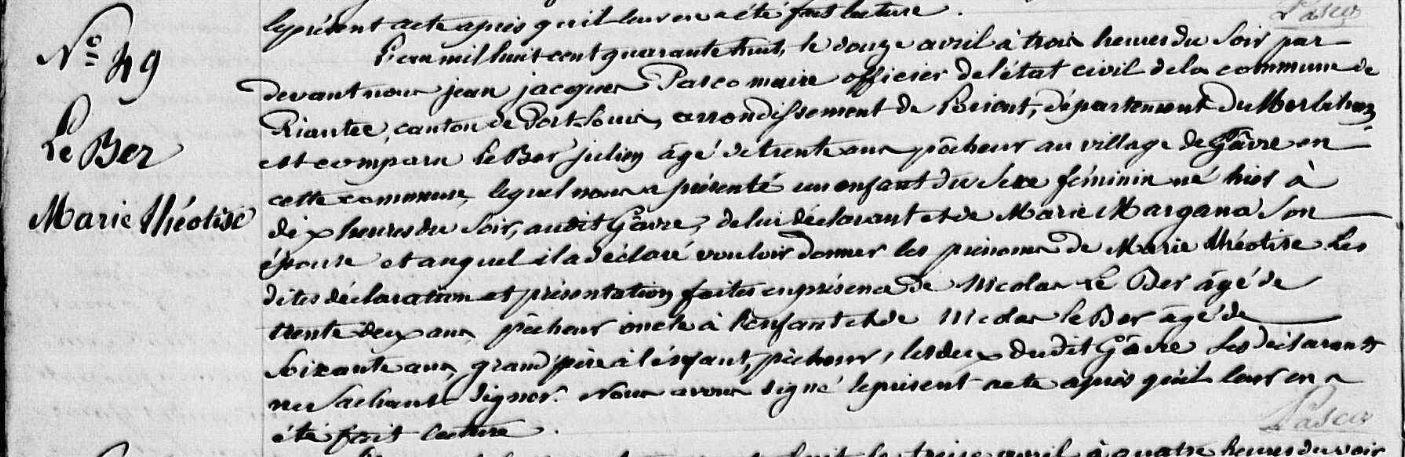 le présent acte après qu'il leur en a été fait lecture.
Pasco
N° 49
Le Ber
Marie théotise
L'an mil huit cent quarante huit, le douze avril à trois heures du soir par
devant nous jean jacques Pasco maire officier de l'état civil de la commune de
Riantec, canton de Port Louis, arrondissement de Lorient, département du Morbihan
est comparu Le Ber julien âgé de trente ans pêcheur au village de Gâvre en
cette commune, lequel nous a présenté un enfant du sexe féminin né hier à
dix heures du soir, audit Gâvre, de lui déclarant et de Marie Margana son
épouse et auquel il a déclaré vouloir donner les prénoms de Marie théotise Les
dites déclaration et présentation faites en présence de Nicolas Le Ber âgé de
trente deux ans, pêcheur oncle à l'enfant et de Nicolas le Ber âgé de
soixante ans, grand'père à l'enfant, pêcheur, les deux dudit Gâvre Les déclarants
ne sachant signer. Nous avons signé le présent acte après qu'il leur en a
été fait lecture.
Pasco
à quatre heures du soir